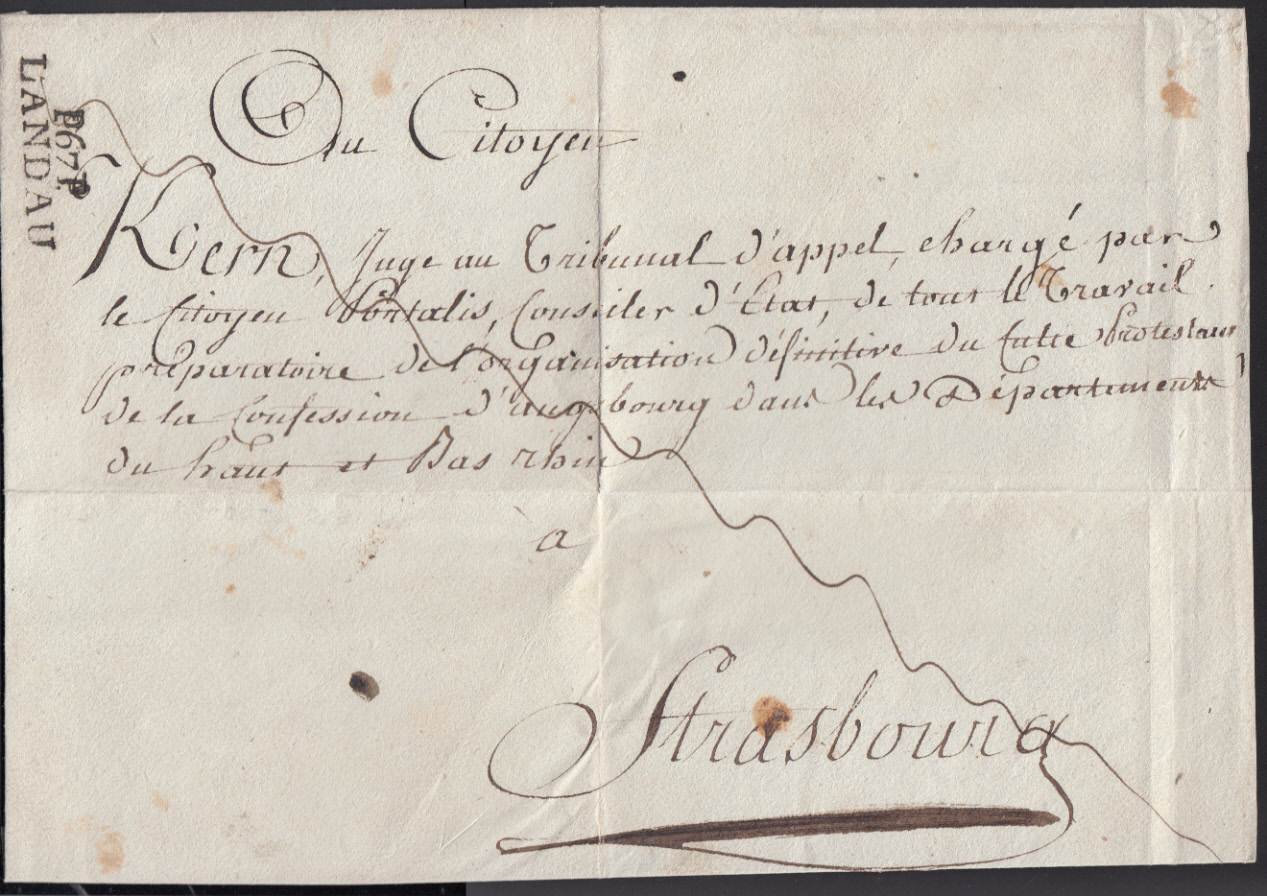 P67P
LANDAU
Au Citoyen
Kern, Juge au Tribunal d'appel, chargé par
le Citoyen Portalis, Conseiler d'État, de tout le Travail
préparatoire de l'organisation définitive du Culte Protestant
de la Confession d'augsbourg dans les Départements
du haut et Bas rhin
a
Strasbourg